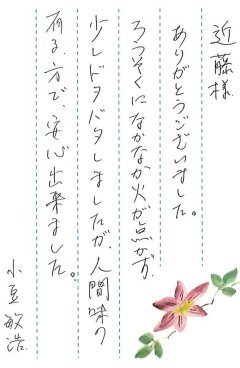 近藤様
ありがとうございました。
ろうそくになかなか火が点かず、
少しドタバタしましたが、人間味の
有る方で、安心出来ました。
小豆敏浩